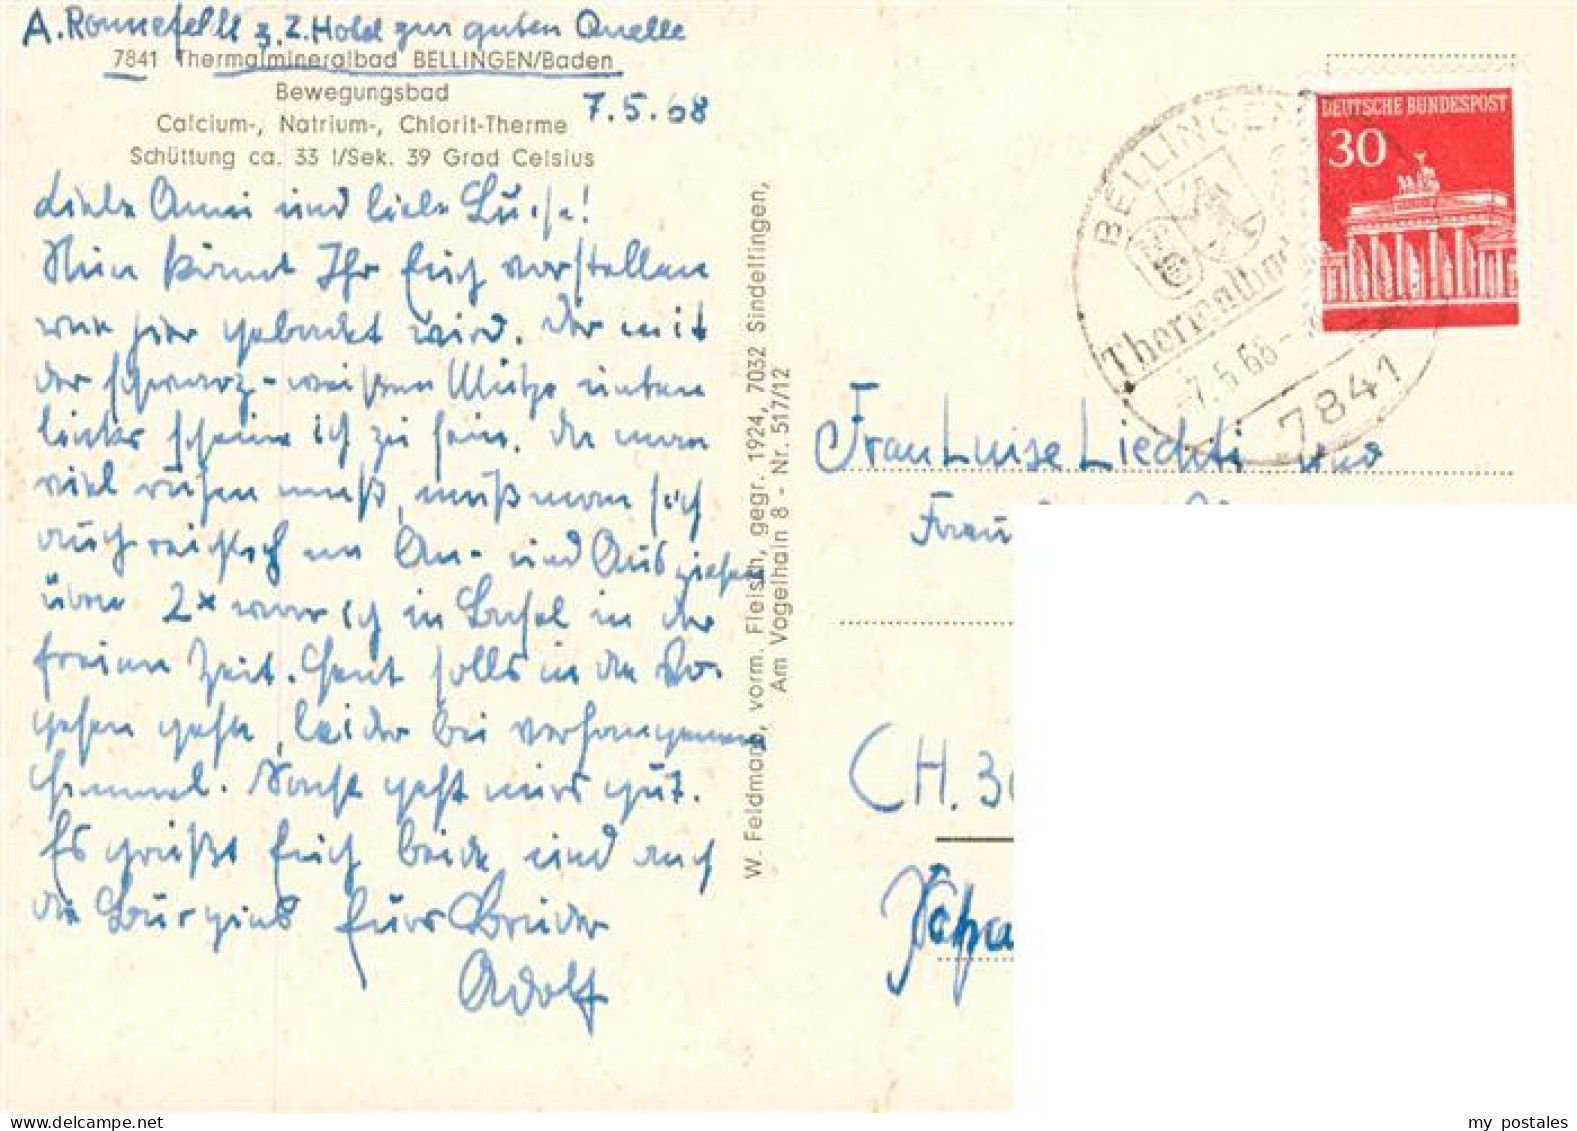 A. Ronnefeldt z. Z. Hotel zur guten Quelle
7841 Thermalmineralbad BELLINGEN/Baden
Bewegungsbad
7.5.68
Calcium-, Natrium-, Chlorit-Therme
Schüttung ca. 33 l/Sek. 39 Grad Celsius
Liebe Anni und liebe Luise!
Nun könnt Ihr Euch vorstellen
wie hier gebadet wird. Der mit
der schwarz-weißen Mütze unten
links scheine ich zu sein. Da man
viel ruhen muß, muß man sich
auch reichlich im An- und Ausziehen
üben 2x war ich in Basel in der
freien Zeit. Heut solls in die Vo-
gesen gehn, leider bei verhangenem
Himmel. Sonst geht mirs gut.
Es grüßt Euch beide und auch
die Euer Bruder
Adolf
W. Feldmann, vorm. Fleisch, gegr. 1924, 7032 Sindelfingen,
Am Vogelhain 8 - Nr. 517/12
DEUTSCHE BUNDESPOST
30
BELLINGEN
-7.5.68-
7841
Frau Luise Liechti und
Frau
CH. 30
my postales